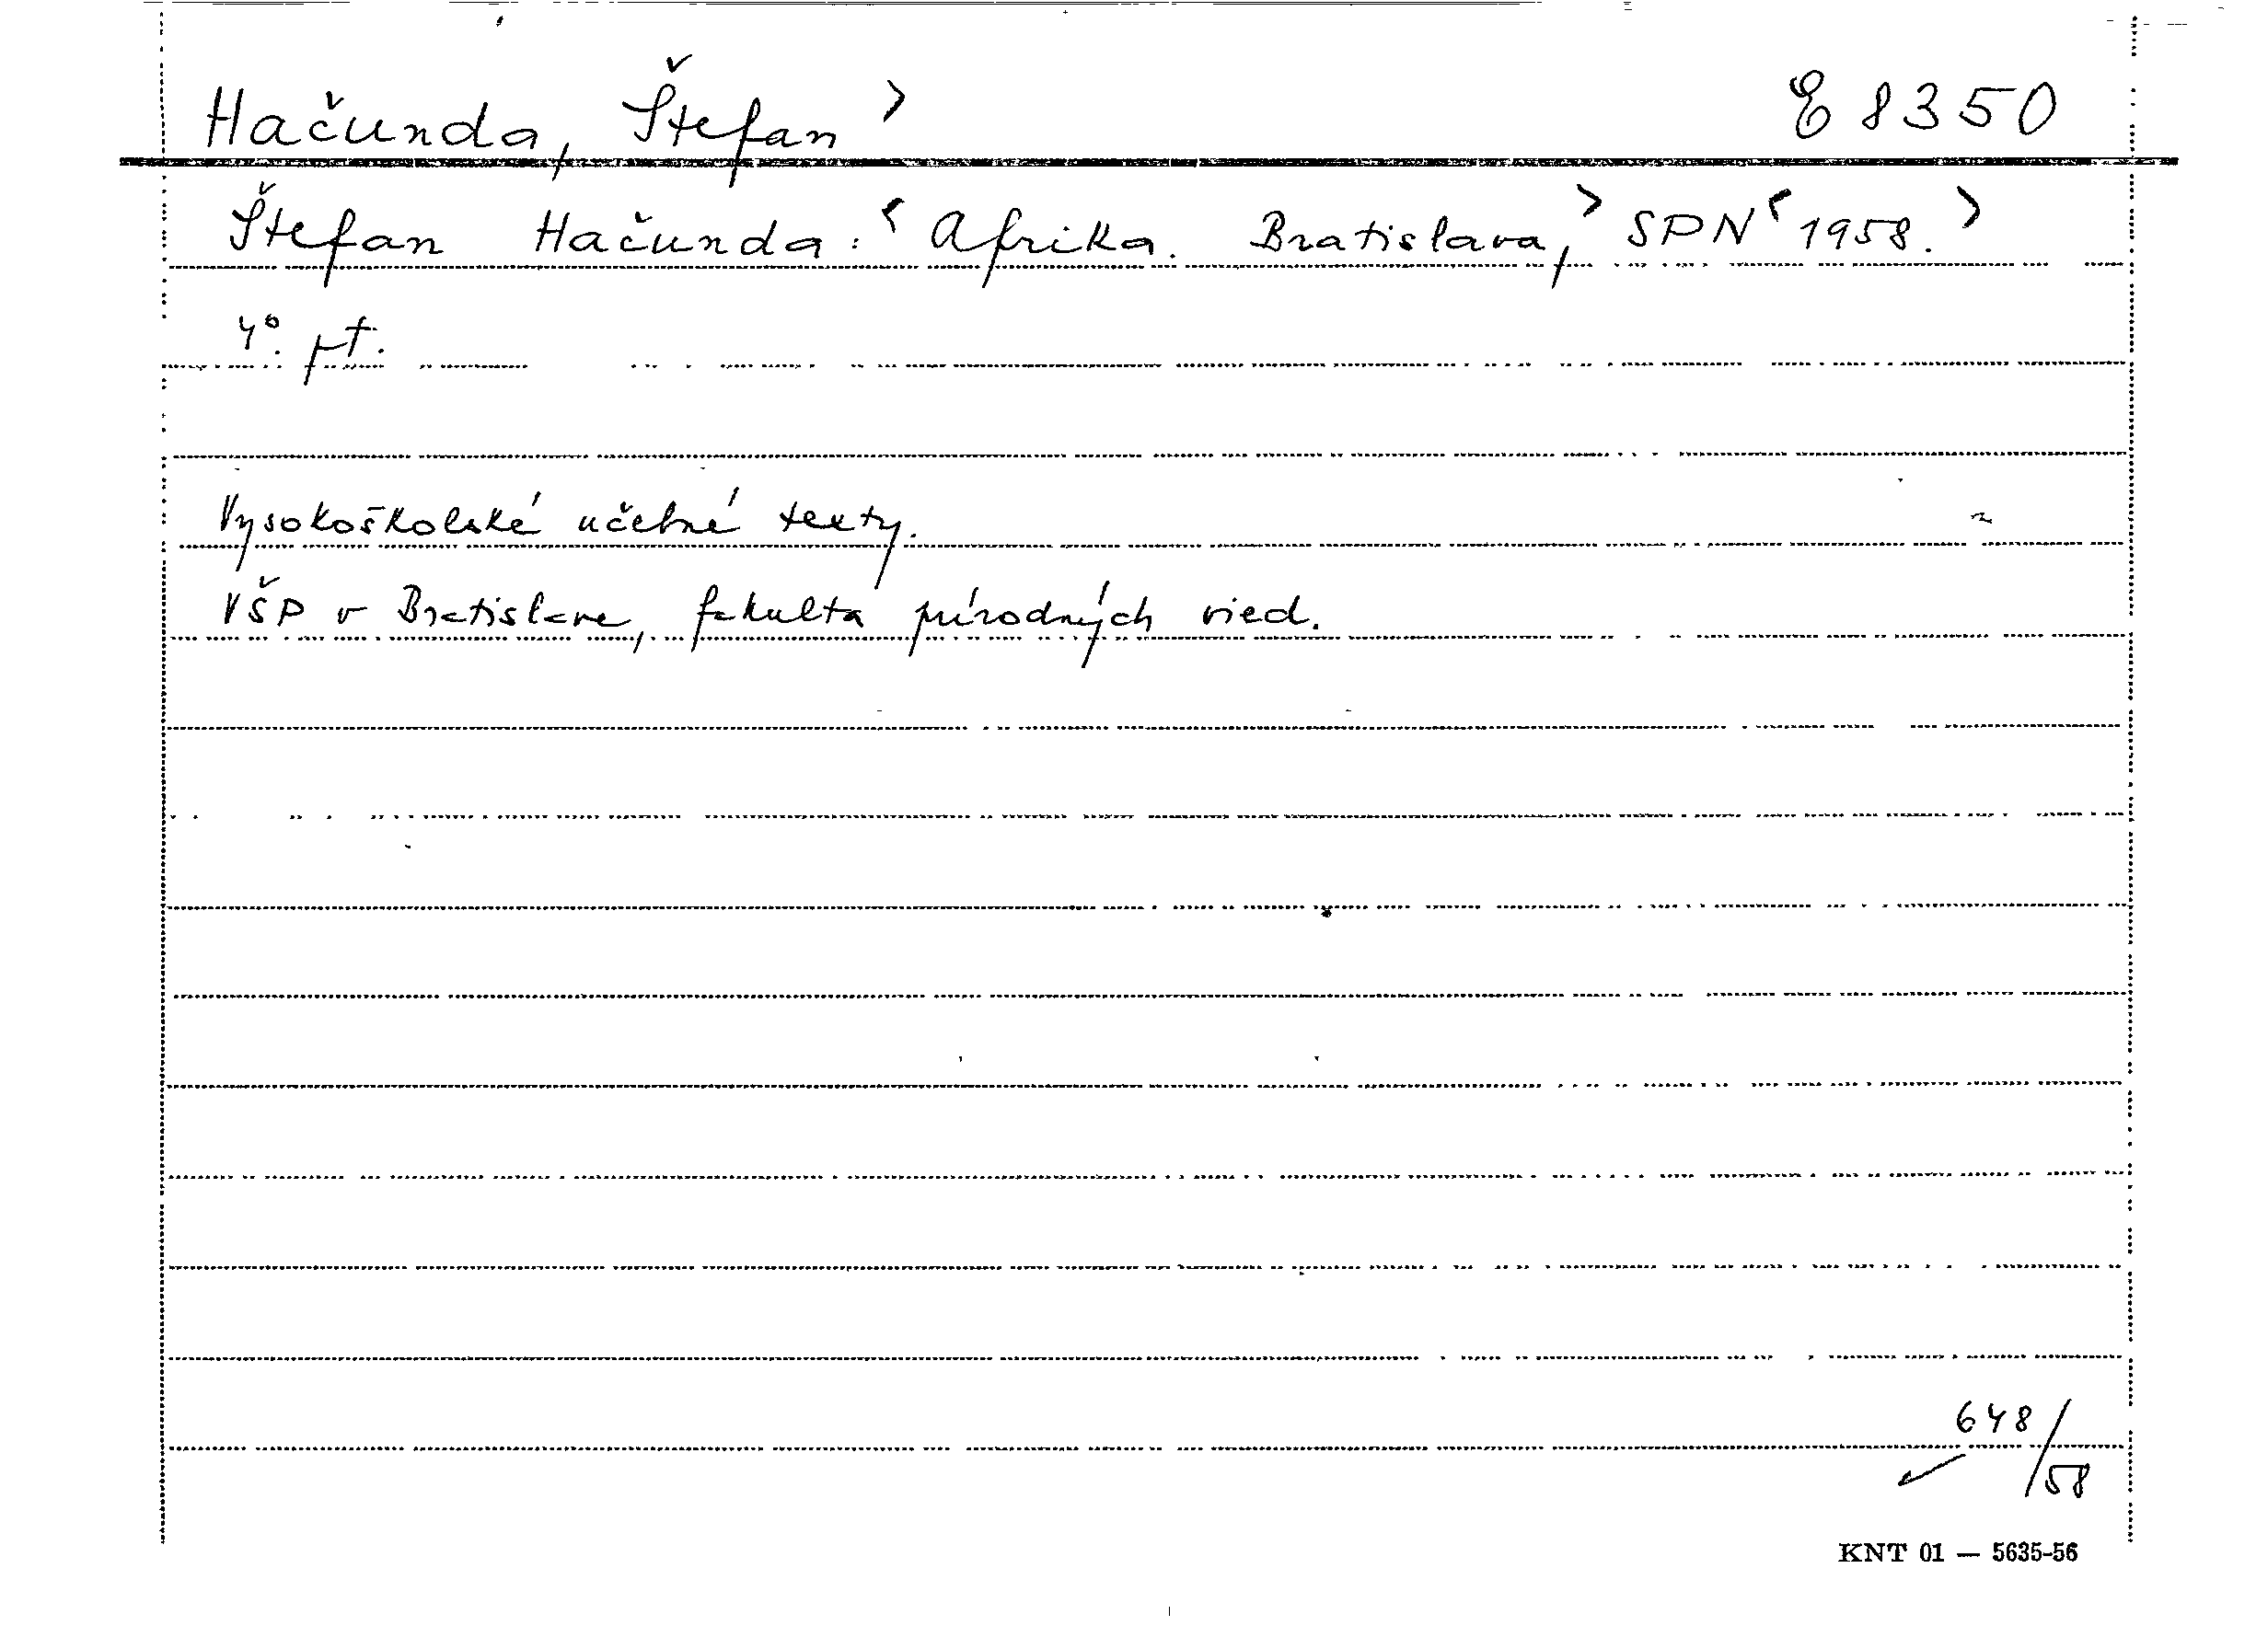 Hačunda, Štefan > E 8350
Štefan Hačunda: < Afrika. Bratislava, > SPN < 1958. >
4°. pt.
Vysokoškolské učebné texty.
VŠP v Bratislave, fakulta prírodných vied.
648/58
KNT 01 — 5635-56